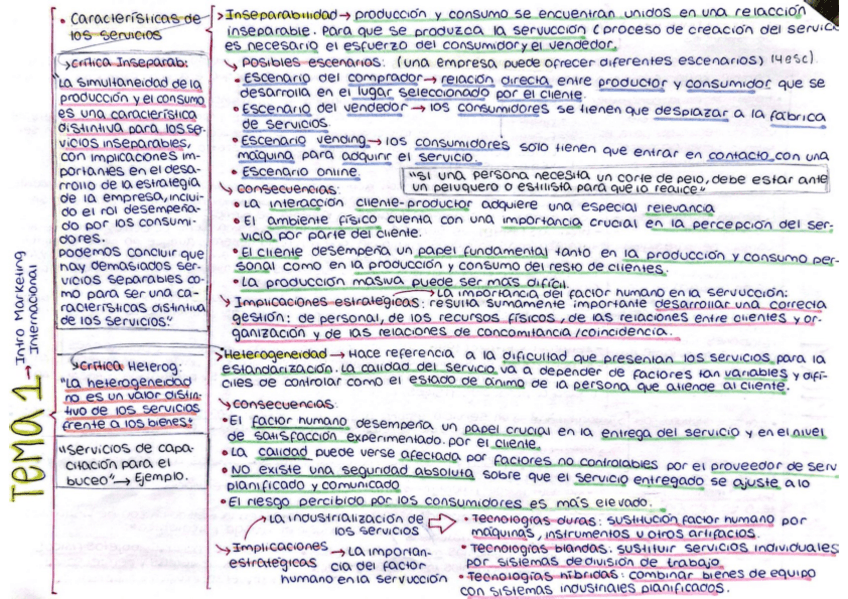 TEMA 1 → Intro Marketing
Internacional
• Características de
los servicios
>Crítica Inseparab:
"La simultaneidad de la
producción y el consumo
es una característica
distintiva para los ser-
vicios inseparables,
con implicaciones im-
portantes en el desa-
rrollo de la estrategia
de la empresa, inclui-
do el rol desempeña-
do por los consumi-
dores.
Podemos concluir que
hay demasiados ser-
vicios separables co-
mo para ser una ca-
racterísticas distintiva
de los servicios"
>Crítica Heterog:
"La heterogeneidad
no es un valor distin-
tivo de los servicios
frente a los bienes"
"Servicios de capa-
citación para el
buceo" → Ejemplo.
>Inseparabilidad → producción y consumo se encuentran unidos en una relacción
inseparable. Para que se produzca la servucción (proceso de creación del servic
es necesario el esfuerzo del consumidor y el vendedor.
↳ Posibles escenarios: (una empresa puede ofrecer diferentes escenarios) 14esc).
• Escenario del comprador → relación directa entre productor y consumidor que se
desarrolla en el lugar seleccionado por el cliente.
• Escenario del vendedor → los consumidores se tienen que desplazar a la fábrica
de servicios.
• Escenario vending → los consumidores solo tienen que entrar en contacto con una
máquina para adquirir el servicio.
• Escenario online.
"Si una persona necesita un corte de pelo, debe estar ante
un peluquero o estilista para que lo realice"
↳ Consecuencias:
• La interacción cliente-productor adquiere una especial relevancia
• El ambiente físico cuenta con una importancia crucial en la percepción del ser-
vicio por parte del cliente.
• El cliente desempeña un papel fundamental tanto en la producción y consumo per-
sonal como en la producción y consumo del resto de clientes.
• La producción masiva puede ser más difícil.
→ La importancia del factor humano en la servucción:
↳ Implicaciones estratégicas: resulta sumamente importante desarrollar una correcta
gestión: de personal, de los recursos físicos, de las relaciones entre clientes y or-
ganización y de las relaciones de concomitancia/coincidencia.
>Heterogeneidad → Hace referencia a la dificultad que presentan los servicios para la
estandarización. La calidad del servicio va a depender de factores tan variables y difí-
ciles de controlar como el estado de ánimo de la persona que atiende al cliente.
↳ Consecuencias:
• El factor humano desempeña un papel crucial en la entrega del servicio y en el nivel
de satisfacción experimentado. por el cliente.
• La calidad puede verse afectada por factores no controlables por el proveedor de serv
• NO existe una seguridad absoluta sobre que el servicio entregado se ajuste a lo
planificado y comunicado
• El riesgo percibido por los consumidores es más elevado.
↳ Implicaciones
estratégicas
→ La industrialización de
los servicios
→ La importan-
cia del factor
humano en la servucción
• Tecnologías duras: sustitución factor humano por
máquinas, instrumentos u otros artifacios.
• Tecnologías blandas: sustituir servicios individuales
por sistemas de división de trabajo.
• Tecnologías híbridas: combinar bienes de equipo
con sistemas industriales planificados.